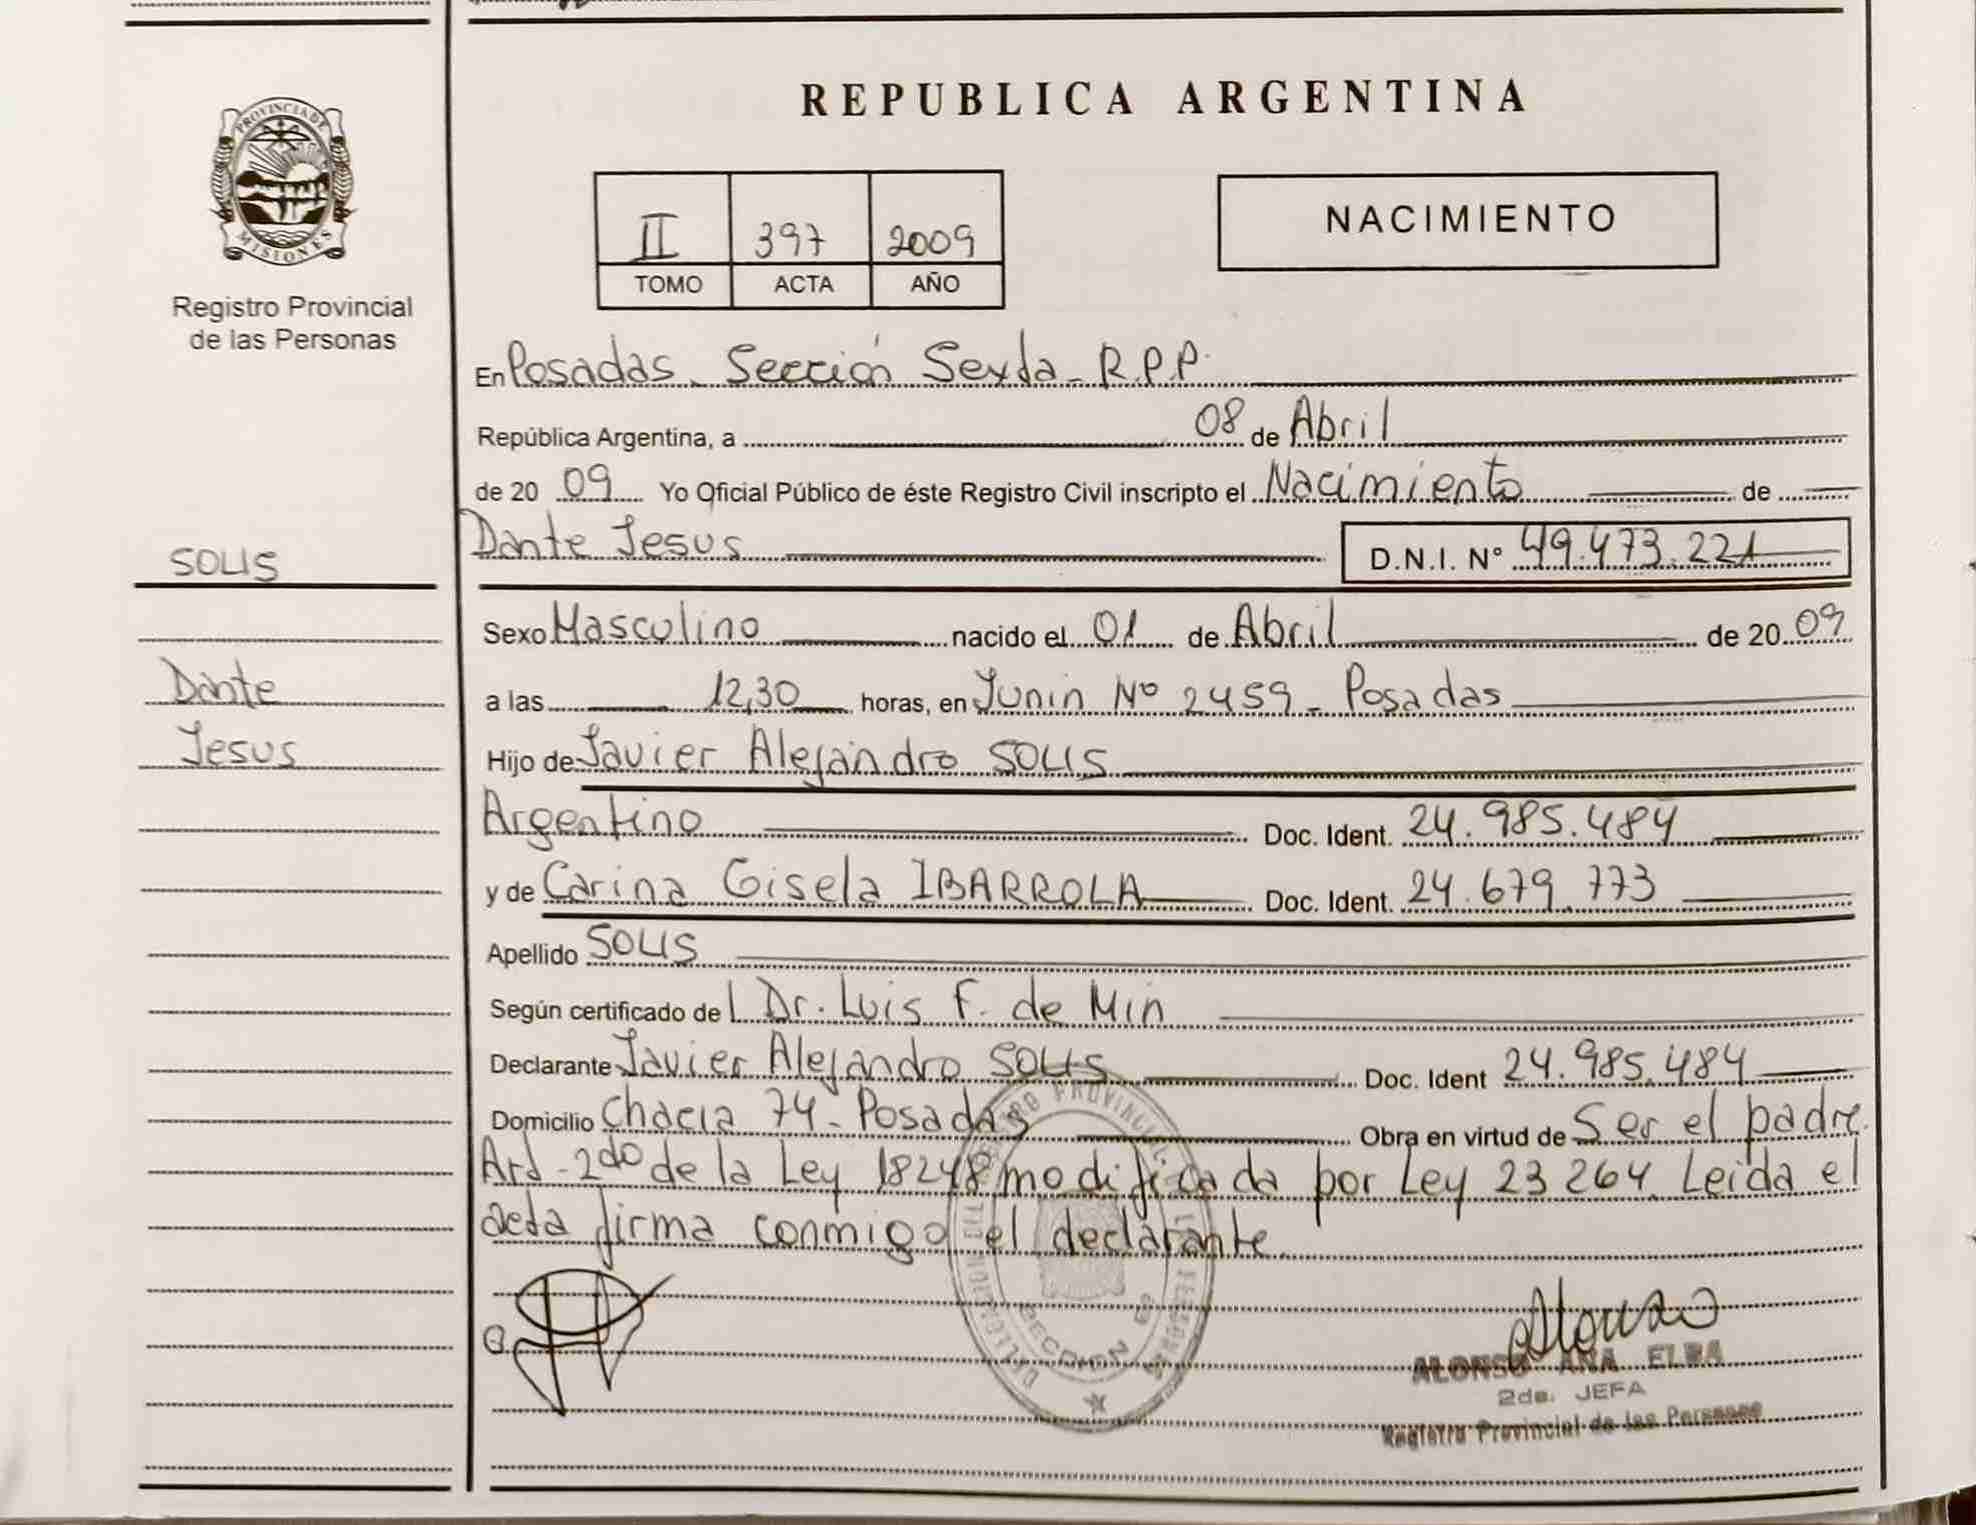 REPUBLICA ARGENTINA
PROVINCIA DE
MISIONES
Registro Provincial
de las Personas
II 397 2009
TOMO ACTA AÑO
NACIMIENTO
En Posadas - Sección Sexta - R.P.P.
República Argentina, a 08 de Abril
de 20 09 Yo Oficial Público de éste Registro Civil inscripto el Nacimiento de
Dante Jesus D.N.I. Nº 49.473.221
SOLIS
Dante
Jesus
Sexo Masculino nacido el 01 de Abril de 20 09
a las 12,30 horas, en Junin Nº 2459 - Posadas
Hijo de Javier Alejandro SOLIS
Argentino Doc. Ident. 24.985.484
y de Carina Gisela IBARROLA Doc. Ident. 24.679.773
Apellido SOLIS
Según certificado del Dr. Luis F. de Min
Declarante Javier Alejandro SOLIS Doc. Ident 24.985.484
Domicilio 74 - Posadas Obra en virtud de Ser el padre.
Art - 2do de la Ley 18248 modificada por Ley 23264. Leida el
acta firma conmigo el declarante.
SECCION
Alonso
ALONSO ANA ELBA
2da. JEFA
Registro Provincial de las Personas